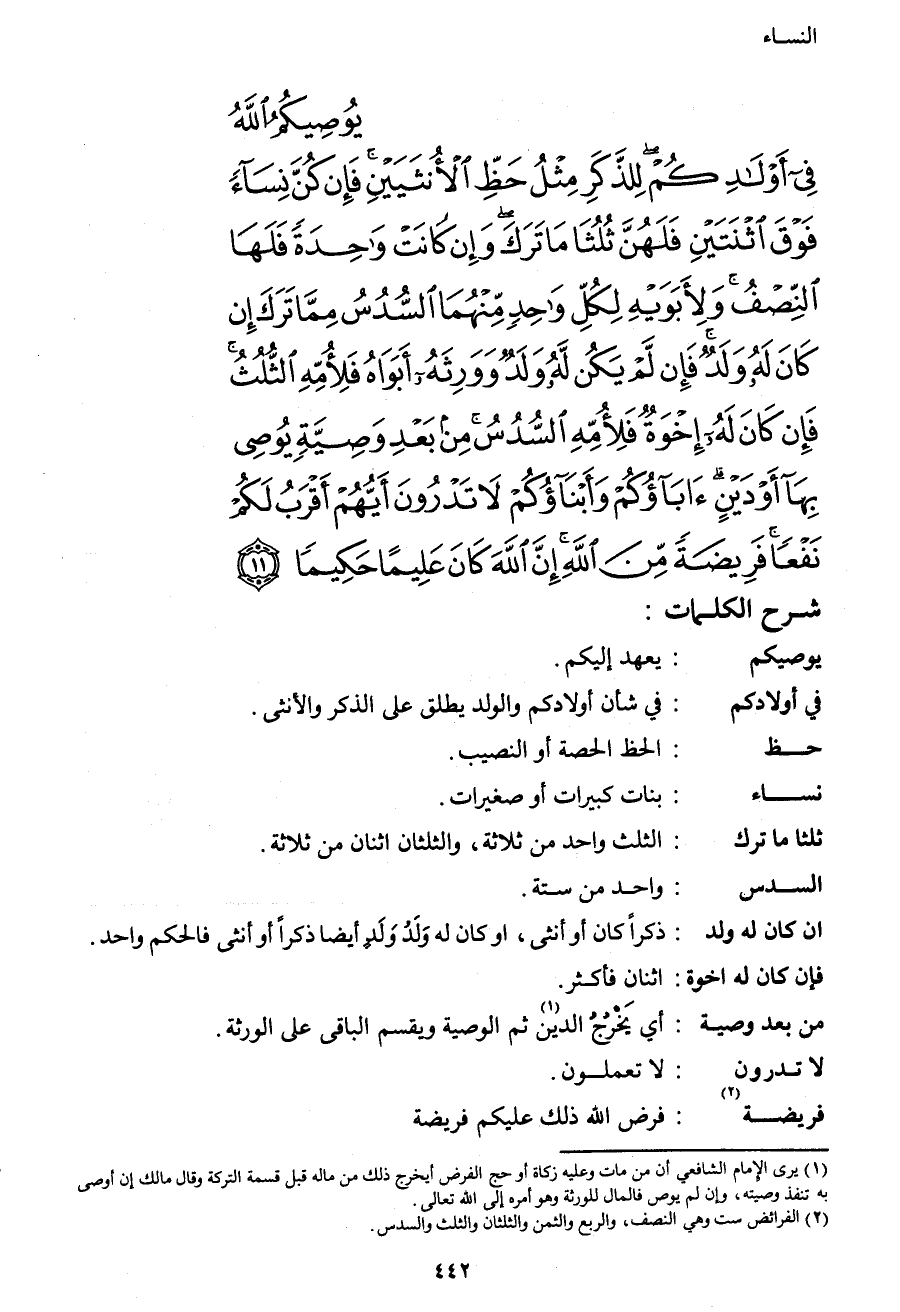 النســاء
يُوصِيكُمُ ٱللَّهُ
فِىٓ أَوْلَٰدِكُمْ ۖ لِلذَّكَرِ مِثْلُ حَظِّ ٱلْأُنثَيَيْنِ ۚ فَإِن كُنَّ نِسَآءً
فَوْقَ ٱثْنَتَيْنِ فَلَهُنَّ ثُلُثَا مَا تَرَكَ ۖ وَإِن كَانَتْ وَٰحِدَةً فَلَهَا
ٱلنِّصْفُ ۚ وَلِأَبَوَيْهِ لِكُلِّ وَٰحِدٍ مِّنْهُمَا ٱلسُّدُسُ مِمَّا تَرَكَ إِن
كَانَ لَهُۥ وَلَدٌ ۚ فَإِن لَّمْ يَكُن لَّهُۥ وَلَدٌ وَوَرِثَهُۥٓ أَبَوَاهُ فَلِأُمِّهِ ٱلثُّلُثُ ۚ
فَإِن كَانَ لَهُۥٓ إِخْوَةٌ فَلِأُمِّهِ ٱلسُّدُسُ ۚ مِنۢ بَعْدِ وَصِيَّةٍ يُوصِى
بِهَآ أَوْ دَيْنٍ ۗ ءَابَآؤُكُمْ وَأَبْنَآؤُكُمْ لَا تَدْرُونَ أَيُّهُمْ أَقْرَبُ لَكُمْ
نَفْعًا ۚ فَرِيضَةً مِّنَ ٱللَّهِ ۗ إِنَّ ٱللَّهَ كَانَ عَلِيمًا حَكِيمًا ١١
شـرح الكلـمات :
يوصيكم : يعهد إليكم.
في أولادكم : في شأن أولادكم والولد يطلق على الذكر والأنثى.
حــظ : الحظ الحصة أو النصيب.
نســاء : بنات كبيرات أو صغيرات.
ثلثا ما ترك : الثلث واحد من ثلاثة، والثلثان اثنان من ثلاثة.
الســدس : واحـد من ستة.
ان كان له ولد : ذكراً كان أو أنثى، او كان له وَلَدُ وَلَدٍ أيضا ذكراً أو أنثى فالحكم واحد.
فإن كان له اخوة : اثنان فأكـثر.
من بعد وصيـة : أي يَخْرُجُ الدين(١) ثم الوصية ويقسم الباقى على الورثة.
لا تـدرون : لا تعملــون.
فريضــة(٢) : فرض الله ذلك عليكم فريضة
(١) يرى الإمام الشافعي أن من مات وعليه زكاة أو حج الفرض أيخرج ذلك من ماله قبل قسمة التركة وقال مالك إن أوصى
به تنفذ وصيته، وإن لم يوص فالمال للورثة وهو أمره إلى الله تعالى.
(٢) الفرائض ست وهي النصف، والربع والثمن والثلثان والثلث والسدس.
٤٤٢